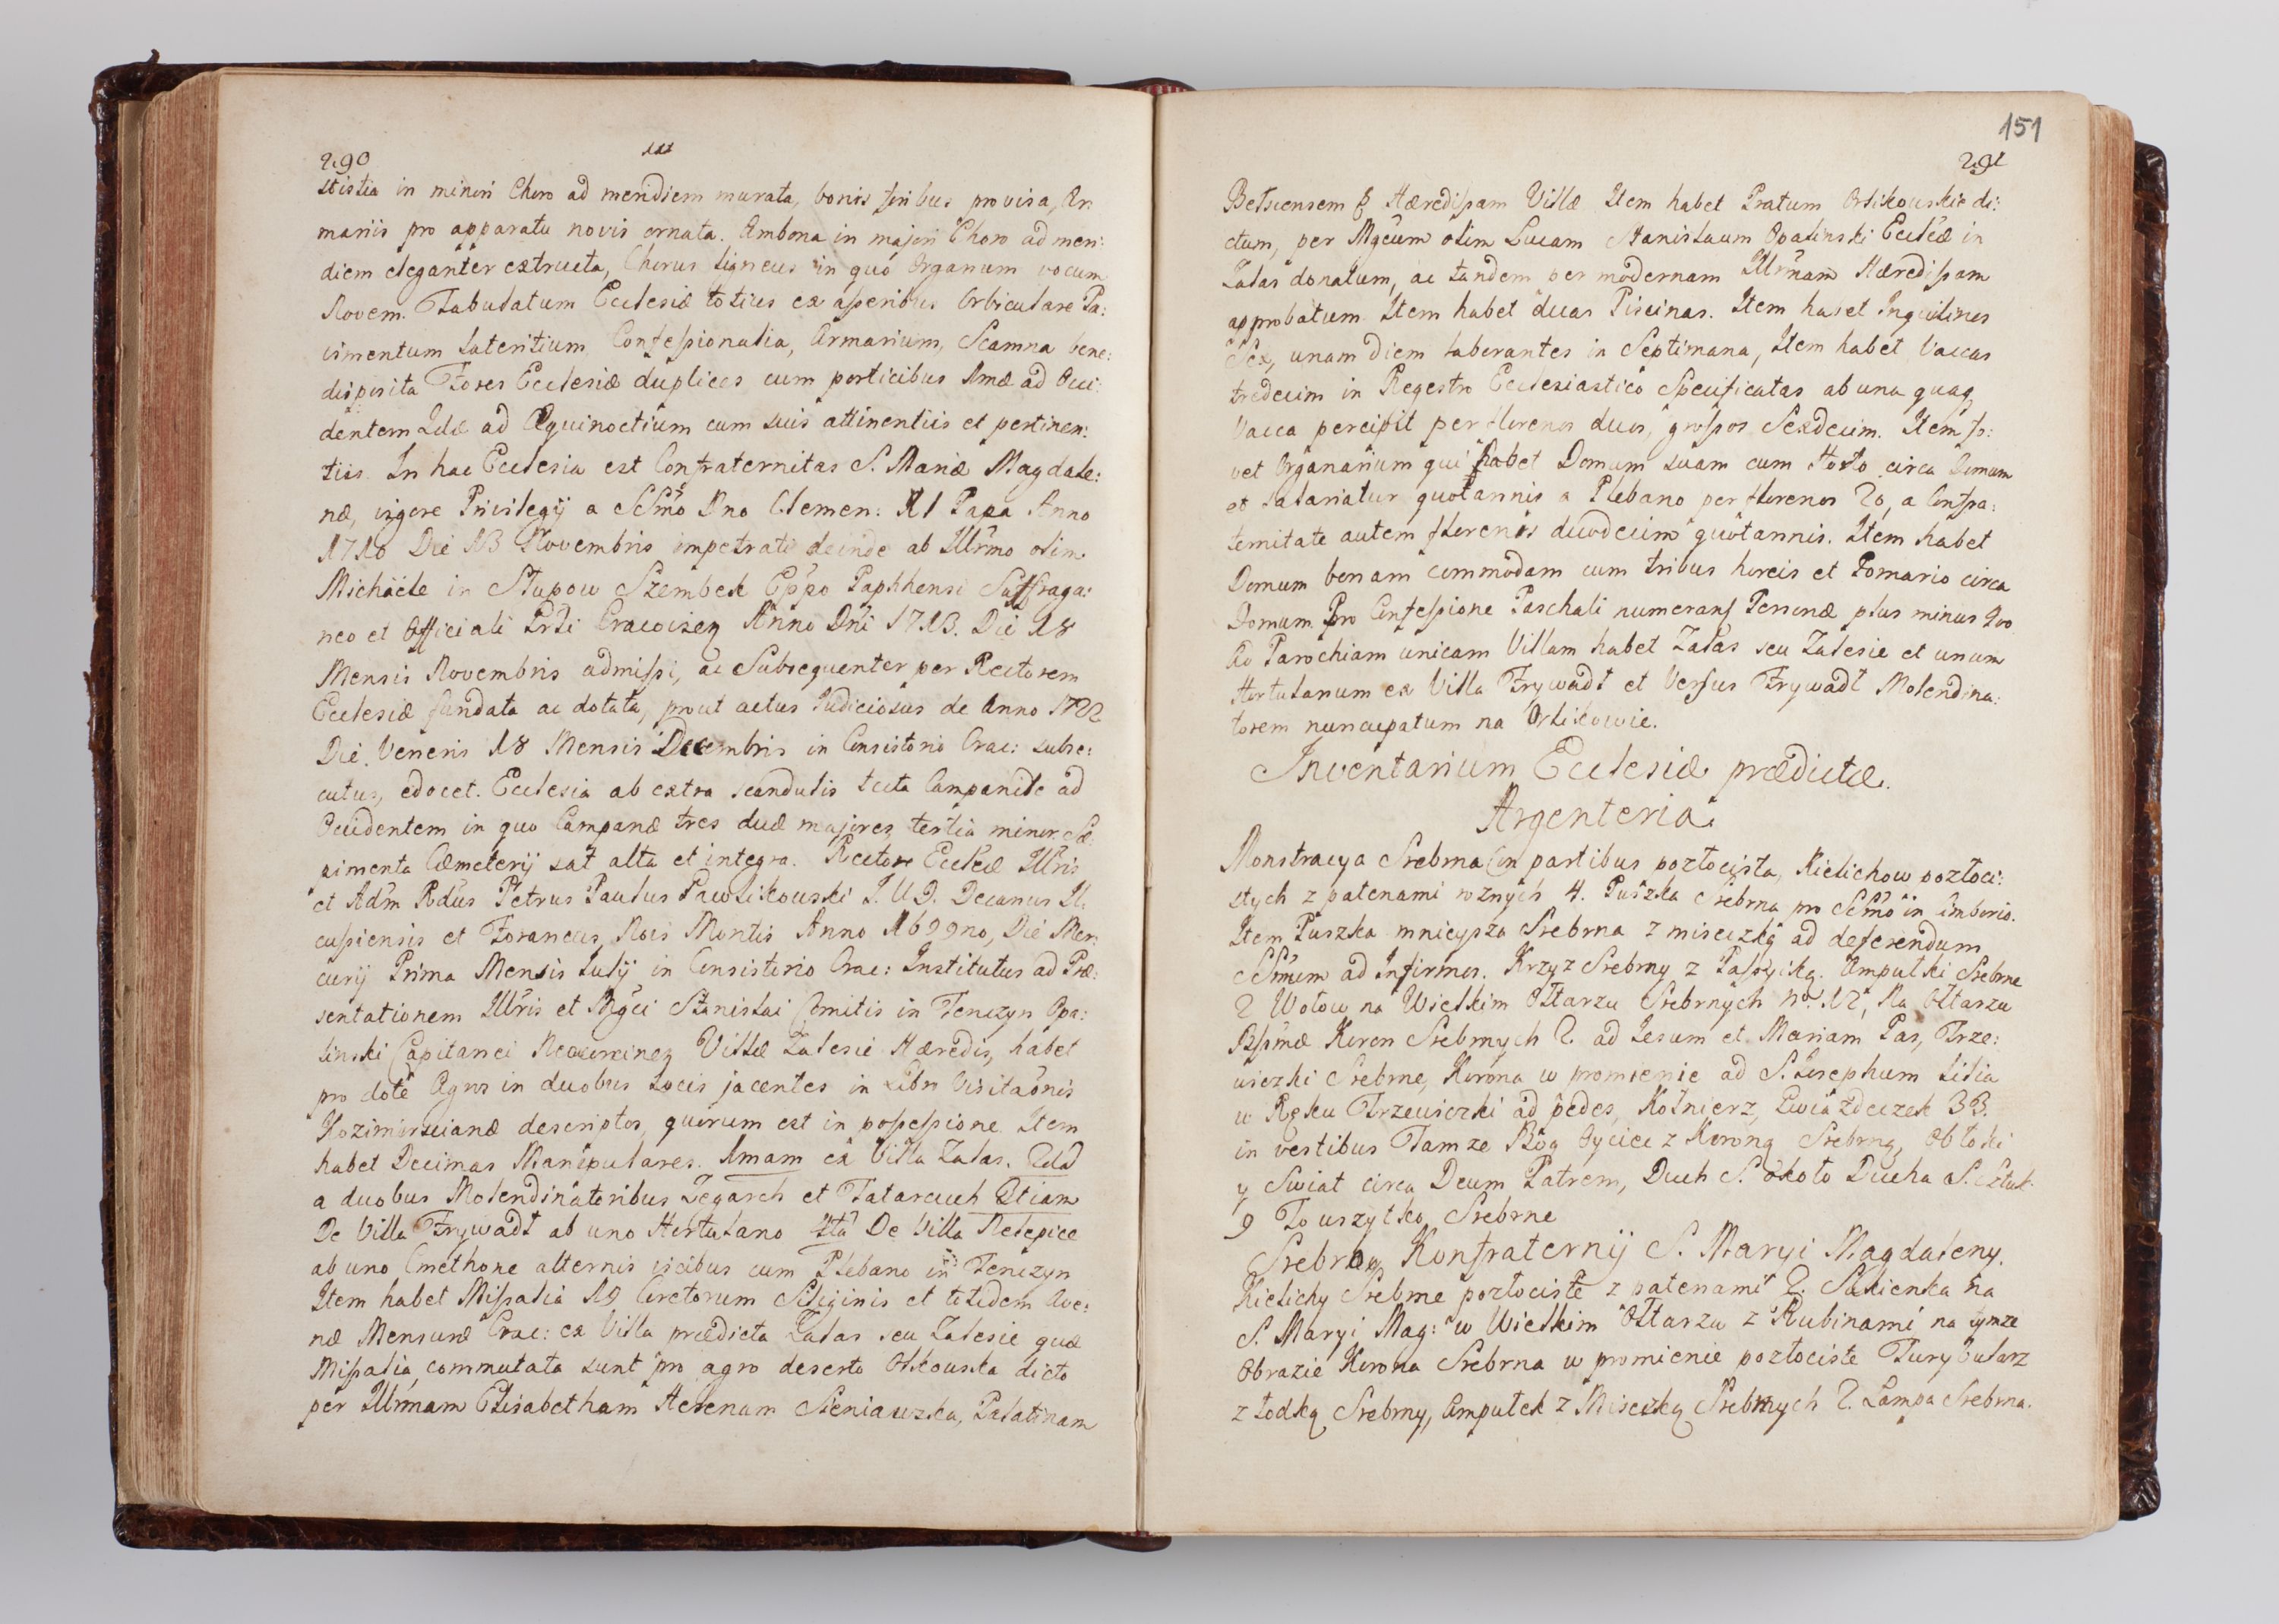 290
stistia in minori Choro ad meridiem murata, bonis foribus provisa, Ar:
mariis pro apparatu novis ornata. Ambona in majori Choro ad meri:
diem eleganter extructa, Chorus ligneus in quo Organum vocum
Novem. Tabulatum Ecclesiæ totius ex asseribus Orbiculare Pa:
vimentum lateritium Confessionalia, Armarium, Scamna bene:
disposita Fores Ecclesiæ duplices cum porticibus 1mæ ad Occi:
dentem 2dæ ad Æquinoctium cum suis attinentiis et pertinen:
tiis. In hac Ecclesia est Confraternitas S. Mariæ Magdale:
næ, vigore Privilegij a SSmo Dno Clemen: XI Papa Anno
1710 Die 13 Novembris impetrati deinde ab Illrmo olim
Michäele in Słupow Szembek Eppo Paphhensi Suffraga:
neo et Officiali Grli Cracovien Anno Dni 1713. Die 18
Mensis Novembris admissi, ac Subsequenter per Rectorem
Ecclesiæ fundata ac dotata, prout actus Judiciosus de Anno 1722
Die Veneris 18 Mensis Decembris in Consistorio Crac: subse:
cutus, edocet. Ecclesia ab extra scandulis tecta Campanile ad
Occidentem in quo Campanæ tres duæ majores tertia minor. Sæ:
pimenta Cæmeterij sat alta et integra. Rector Eccleæ Illris
et Adm Rdus Petrus Paulus Pawlikowski J. U D. Decanus Il:
cussiensis et Foraneus Novi Montis Anno 1699no, Die Mer:
curij Prima Mensis Julij in Consistorio Crac: Institutus ad Præ:
sentationem Illris et Mgci Stanislai Comitis in Tenczyn Opa:
linski Capitanei Villæ Zalesie Hæredis, habet
pro dote Agros in duobus locis jacentes in Libro Visitaonis
Kozimirscianæ descriptos, quorum est in possessione. Item
habet Decimas Manipulares. 1mam ex Villa Zalas. 2dá
a duobus Molendinatoribus Zegarch et Tatarcuch 3tiam
De Villa Frywadt ab uno Hortulano 4tá De Villa Nelepice
ab uno Cmethone alternis vicibus cum Plebano in Tenczyn
Item habet Missalia 19 Coretorum Siliginis et totidem Ave:
næ Mensuræ Crac: ex Villa prædicta Zalas seu Zalesie quæ
Missalia commutata sunt pro agro deserto Olkowska dicto
per Illrmam Elisabetham Helenam Sieniawska, Palatinam
151
291
Belsciensem & Hæredissam Villæ Item habet Pratum Orlikowskie di:
ctum, per Mgcum olim Lucam Stanislaum Opalinski Eccleæ in
Zalas donatum, ac tandem per modernam Illrmam Hæredissam
approbatum. Item habet duas Piscinas. Item habet Inquilinos
Sex, unam diem laborantes in Septimana, Item habet Vaccas
tredecim in Regestro Ecclesiastico Specificatas ab una quaq
Vacca percipit per florenos duos, grossos Sexdecim. Item fo:
vet Organarium qui habet Domum suam cum Horto circa Domum
et salariatur quotannis a Plebano per florenos 20, a Confra:
ternitate autem florenis duodecim quotannis. Item habet
Domum bonam commodam cum tribus horeis et Pomario circa
Domum. Pro Confessione Paschali numerans Personæ plus minus 300
Ad Parochiam unicam Villam habet Zalas seu Zalesie et unum
Hortulanum ex Villa Frywadt et Versus Frywadt Molendina:
torem nuncupatum na Orlikowie.
Inventarium Ecclesiæ prædictæ.
Argenteria.
Monstracya Srebrna in partibus pozłocista, Kielichow pozłoci:
stych z patenami roznych 4. Puszka Srebrna pro SSmo in Cimborio.
Item Puszka mnieysza Srebrna z miseczką ad deferendum
SSmum ad Infirmos. Krzyz Srebrny z Passyiką. Ampułki Srebrne
2 Wotow na Wielkim Ołtarzu Srebrnych no 12, Na Ołtarzu
Bssmæ Koron Srebrnych 2. ad Jesum et Mariam Pas, Trze:
wiczki Srebrne, Korona w promienie ad S. Josephum Lilia
w Ręku Trzewiczki ad pedes, Kołnierz, Gwiazdeczek 33.
in vestibus Tamze Bog Oyciec z Koroną Srebrną, Obłoki
y Swiat circa Deum Patrem, Duch S. około Ducha S. Sztuk
9 To wszytko Srebrne
Srebro Konfraternij S. Maryi Magdaleny.
Kielichy Srebrne pozłociste z patenami 2. Sukienka na
S. Maryi Mag: w Wielkim Ołtarzu z Rubinami na tymze
Obrazie Korona Srebrna w promienie pozłociste Turybularz
z Łodką Srebrny, Ampułek z Miseczką Srebrnych 2. Lampa Srebrna.